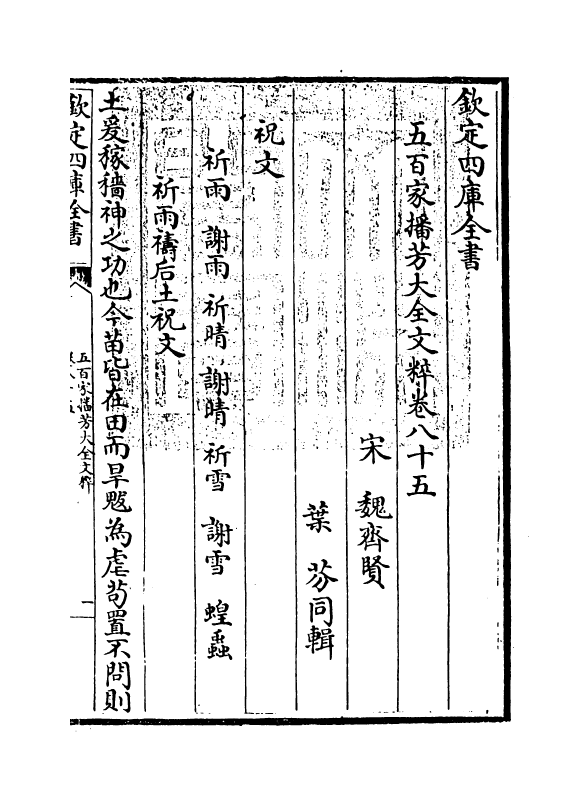 欽定四庫全書
五百家播芳大全文粹卷八十五
宋 魏齊賢
葉 芬同輯
祝文
祈雨 謝雨 祈晴 謝晴 祈雪 謝雪 蝗蟲
祈雨禱后土祝文
土爰稼穡神之功也今苗皆在田而旱魃為虐茍置不問則
欽定四庫全書
五百家播芳大全文粹
一